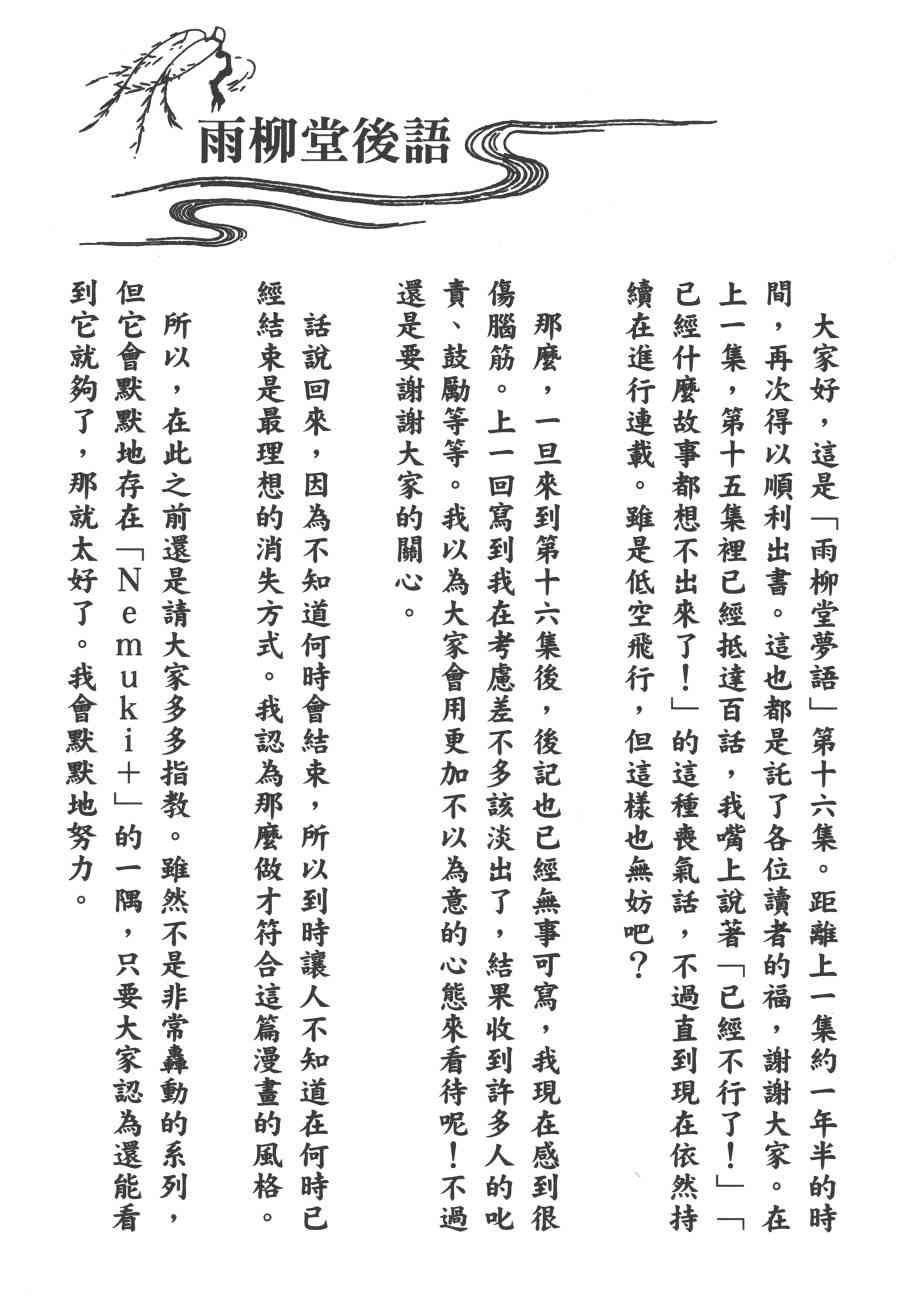 雨柳堂後語
大家好，這是「雨柳堂夢語」第十六集。距離上一集約一年半的時
間，再次得以順利出書。這也都是託了各位讀者的福，謝謝大家。在
上一集，第十五集裡已經抵達百話，我嘴上說著「已經不行了！」「
已經什麼故事都想不出來了！」的這種喪氣話，不過直到現在依然持
續在進行連載。雖是低空飛行，但這樣也無妨吧？
那麼，一旦來到第十六集後，後記也已經無事可寫，我現在感到很
傷腦筋。上一回寫到我在考慮差不多該淡出了，結果收到許多人的叱
責、鼓勵等等。我以為大家會用更加不以為意的心態來看待呢！不過
還是要謝謝大家的關心。
話說回來，因為不知道何時會結束，所以到時讓人不知道在何時已
經結束是最理想的消失方式。我認為那麼做才符合這篇漫畫的風格。
所以，在此之前還是請大家多多指教。雖然不是非常轟動的系列，
但它會默默地存在「Nemuki＋」的一隅，只要大家認為還能看
到它就夠了，那就太好了。我會默默地努力。